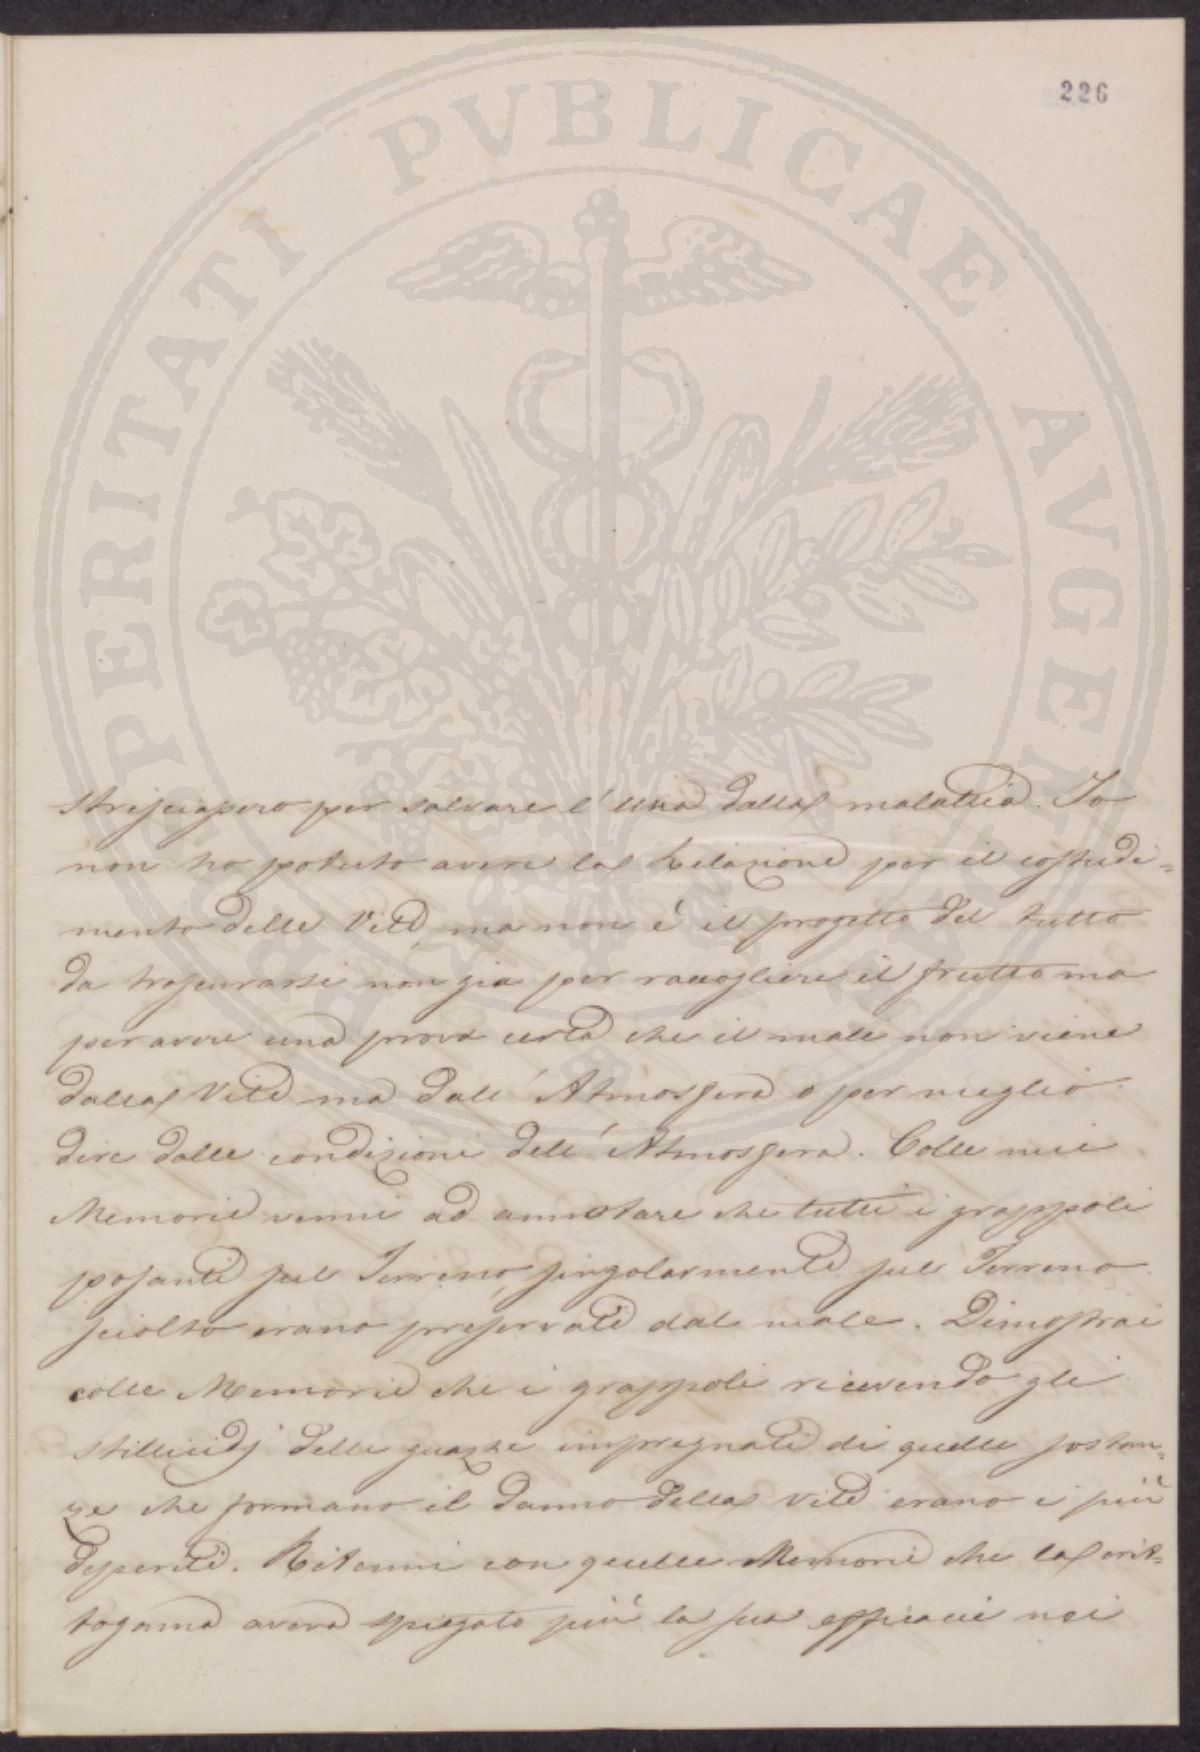 226
PROSPERITATI PVBLICAE AVGENDAE
per salvare l'uva dalla malattia. Io
non ho potuto avere la Relazione per il costudi=
mento delle Vite, ma non é il progetto del tutto
da trascurarsi non gia per raccogliere il frutto ma
per avere una prova certa che il male non viene
dalla Vite ma dall'Atmosfera o per meglio
dire dalle condizioni dell'Atmosfera. Colle mie
Memorie venni ad annotare che tutti i grappoli
posanti sul Terreno, singolarmente sul Terreno
sciolto erano preservati dal male. Dimostrai
colle Memorie che i grappoli ricevendo gli
stillicidj delle impregnati di quelle sostan=
ze che formano il danno della vite erano i più
deperiti. Ritenni con quelle Memorie che la crit=
togama aveva spiegato più la sua efficacie nei